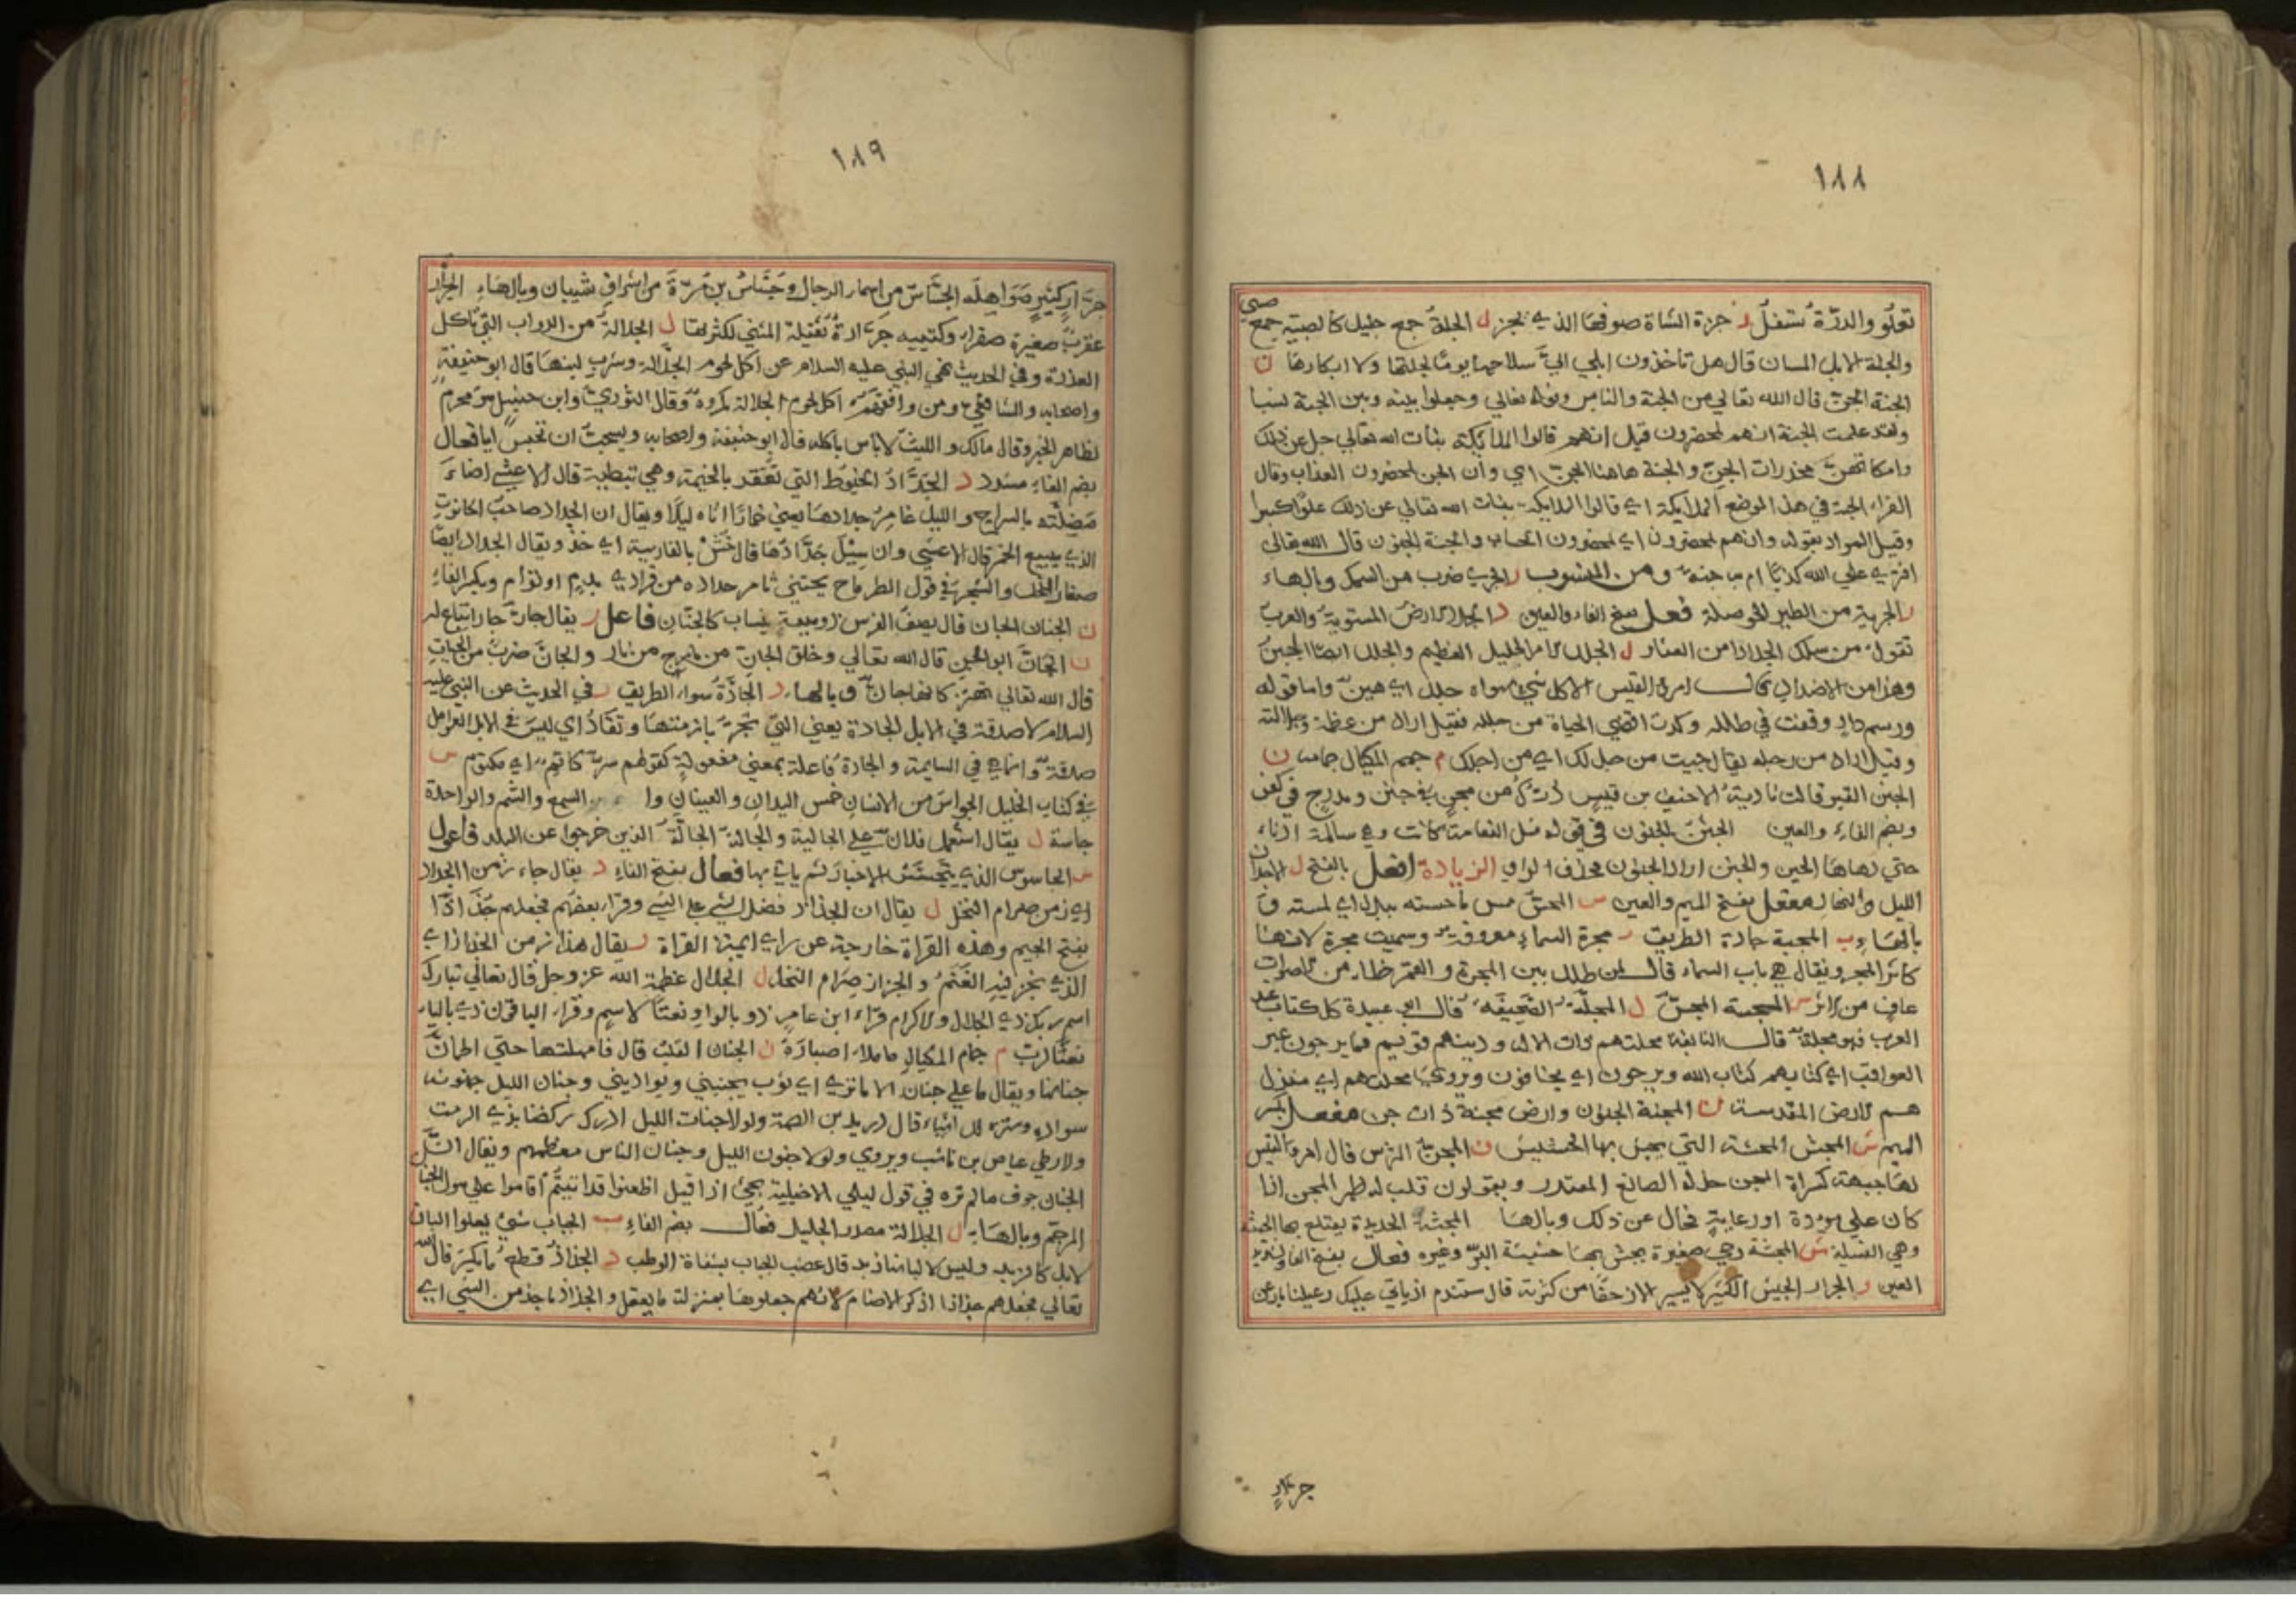 ١٨٨
تعلو والدرة تستفل ز جزة الشاة صوفها الذي يجز ل الجلة جمع جليل كالصبية جمع صبي
والجلة الابل المسان قال هل تاخذون ابلي الي سلاحها يوما لجلتها ولا ابكارها ن
الجنة الجن قال الله تعالي من الجنة والناس وقوله تعالي وجعلوا بينه وبين الجنة نسبا
ولقد علمت الجنة انهم لمحضرون قيل انهم قالوا الملايكة بنات الله تعالي جل عن ذلك
وامهاتهن مخدرات الجن والجنة هاهنا الجن اي وان الجن لمحضرون العذاب وقال
الفراء الجنة في هذا الموضع الملايكة اي قالوا الملايكة بنات الله تعالي عن ذلك علوا كبيرا
وقيل المراد بقوله وانهم لمحضرون اي لمحضرون الحساب والجنة الجنون قال الله تعالي
افتري علي الله كذبا ام به جنة ومن المنسوب ر الجري ضرب من السمك وبالهاء
ر الجرية من الطير الحوصلة فعل بفتح الفاء والعين د الجدد الارض المستوية والعرب
تقول من سلك الجدد امن العثار ل الجلل الامر الجليل العظيم والجلل ايضا الهين
وهذا من الاضداد قال امرؤ القيس الا كل شيء سواه جلل اي هين واما قوله
ورسم دار وقفت في طلله وكدت اقضي الحياة من جلله فقيل اراد من عظمه وجلالته
وقيل اراد من اجله يقال جيت من جلل لك اي من اجلك م جمم المكيال جمامه ن
الجنن القبر قالت نادبة الاحنف بن قيس لله درك من مجن في جنن ومدرج في كفن
وبضم الفاء والعين الجنن الجنون في قوله مثل النعامة كانت وهي سالمة اذناء
حتي زهاها الحين والجنن اراد الجنون فحذف الواو الزيادة افعل بالفتح ل الاجدان
الليل والنهار مفعل بفتح الميم والعين س المجس مس ما جسسته بيدك اي لمسته و
بالهاء ب المجبة جادة الطريق ر مجرة السماء معروفة وسميت مجرة لانها
كاثر المجر ويقال هي باب السماء قال لمن طلل بين المجرة والقمر خلا من الاصوات
عاف من الاثر س المجسة المجس ل المجلة الصحيفة قال ابو عبيدة كل كتاب عند
العرب فهو مجلة قال النابغة مجلتهم ذات الاله ودينهم قويم فما يرجون غير
العواقب اي كتابهم كتاب الله ويرجون اي يخافون ويروي محلتهم اي منزل
هم الارض المقدسة ن المجنة الجنون وارض مجنة ذات جن مفعل بكسر
الميم ش المجش المجشة التي يجش بها الحشيش ن المجن الترس قال امرؤ القيس
لها جبهة كسراة المجن حذفه الصانع المقتدر ويقولون قلب له ظهر المجن اذا
كان علي مودة او رعاية فحال عن ذلك وبالها المجثة الحديدة يقتلع بها الجثة
وهي الفسيلة ش المجشة رحي صغيرة يجش بها جشيشة البر وغيره فعال بفتح الفاء وتشديد
العين ر الجرار الجيش الكثير لا يسير الا زحفا من كثرته قال ستندم اذ ياتي عليك رعيلنا بارعن
جرار
١٨٩
جرار كثير صواهله الجساس من اسماء الرجال وجساس بن مرة من اشراف شيبان وبالهاء الجرارة
عقرب صغيرة صفراء وكتيبه جرارة ثقيلة المشي لكثرتها ل الجلالة من الدواب التي تاكل
العذرة وفي الحديث نهي النبي عليه السلام عن اكل لحوم الجلالة وشرب لبنها قال ابو حنيفة
واصحابه والشافعي ومن وافقهم اكل لحوم الجلالة مكروه وقال الثوري وابن حنبل هو محرم
لظاهر الخبر وقال مالك والليث لا باس باكله قال ابو حنيفة واصحابه ويستحب ان تحبس اياما فعال
بضم الفاء مشدد د الجداد الخيوط التي تعقد بالخيمة وهي نبطية قال الاعشي اضاء
مظلته بالسراج والليل غامر جدادها يعني خمارا اتاه ليلا ويقال ان الجداد صاحب الحانوت
الذي يبيع الخمر قال الاعشي وان سيل جدادها قال خش بالفارسية اي خذ ويقال الجداد ايضا
صغار النخل والشجر في قول الطرماح يجتني ثامر جداده من فرادي برم او تؤام وبكسر الفاء
ن الجنان الحيات قال يصف الفرس ينساب كالجنان فاعل ر يقال حار جار اتباع له
ن الجان ابو الجن قال الله تعالي وخلق الجان من مارج من نار والجان ضرب من الحيات
قال الله تعالي تهتز كانها جان وبالهاء د الجادة سواء الطريق ر في الحديث عن النبي عليه
السلام لا صدقة في الابل الجارة يعني التي تجر بازمتها وتقاد اي ليس في الابل العوامل
صدقة وانما هي في السايمة والجارة فاعلة بمعني مفعولة كقولهم سر كاتم اي مكتوم س
في كتاب الخليل الجواس من الانسان خمس اليدان والعينان وا السمع والشم والواحدة
جاسة ل يقال استعمل فلان علي الجالية والجالة الجالة الذين خرجوا عن البلد فاعول
س الجاسوس الذي يتجسس الاخبار ثم ياتي بها فعال بفتح الفاء د يقال جاء زمن الجداد
اي زمن صرام النخل ل يقال ان الجذاذ فضل الشي علي الشي وقرا بعضهم فجعلهم جذاذا
بفتح الجيم وهذه القراة خارجة عن راي ايمة القراة ز يقال هذا زمن الجزاز اي
الذي يجز فيه الغنم والجزاز صرام النخل ل الجلال عظمة الله عز وجل قال تعالي تبارك
اسم ربك ذي الجلال والاكرام قراء ابن عامر ذو بالواو نعتا لاسم وقراء الباقون ذي بالياء
نعتا لرب م جمام المكيال ما ملاء اصباره ن الجنان القلب قال فامهلتها حتي اطمان
جنانها ويقال ما علي جنان الا ما تري اي ثوب يجنني ويواريني وجنان الليل جنونه
سواده وستره للاشياء قال دريد بن الصمة ولولا جنان الليل ادرك ركضنا بذي الرمث
والارطي عياض بن ناشب ويروي ولولا جنون الليل وجنان الناس معظمهم ويقال ان
الجنان جوف ما لم تره في قول ليلي الاخيلية بحي اذا قيل اظعنوا قد اتيتم اقاموا علي هول الجنان
المرجم وبالهاء ل الجلالة مصدر الجليل فعال بضم الفاء ب الجباب شيء يعلوا البان
الابل كالزبد وليس لالبانها زبد قال عصب الجباب بشفاه الوطب ذ الجذاذ قطع ما يكسر قال الله
تعالي فجعلهم جذاذا اذكر الاصنام لانهم جعلوها بمنزلة ما يعقل والجذاذ ما جذ من الشي اي